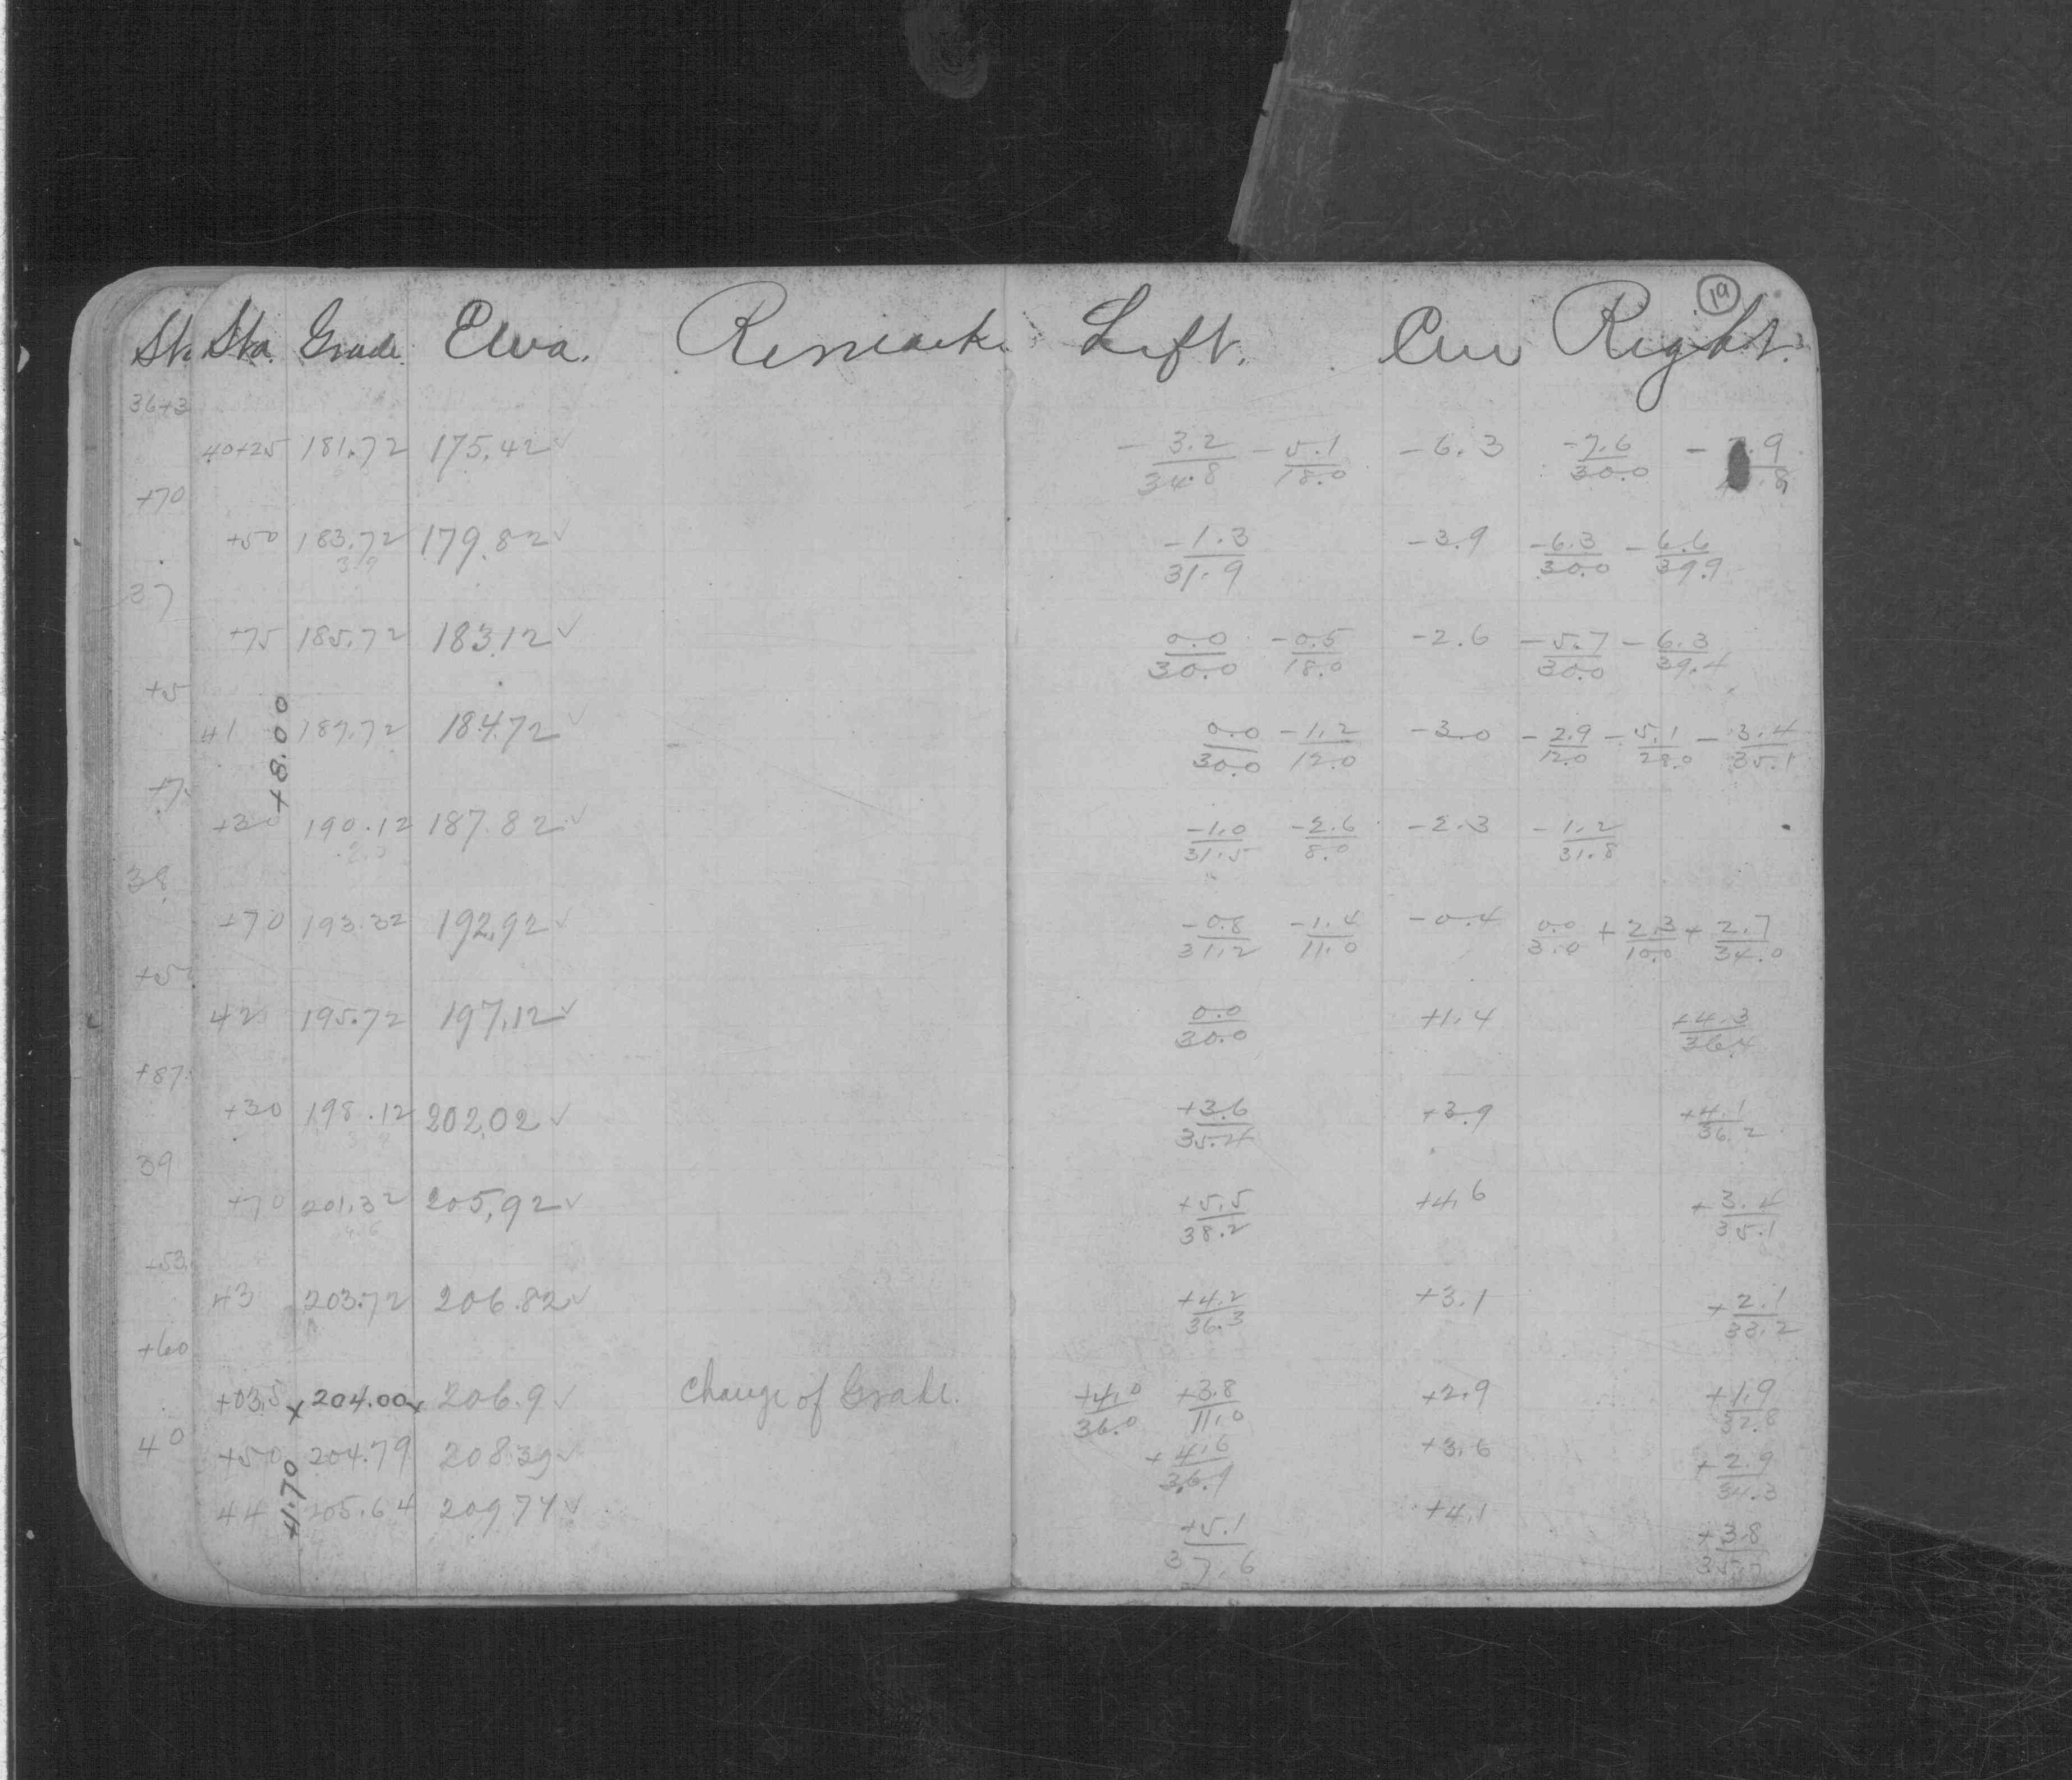 19
Sta. Grade Elva. Remark Left. Cen Right.
36+3
40+25 181.72 175.42 ✓ -3.2/34.8 -5.1/18.0 -6.3 -7.6/30.0
+70
+50 183.72 179.82 ✓ -1.3/31.9 -3.9 -6.3/30.0 -6.6/39.9
3.9
37
+75 185.72 183.12 ✓ 0.0/30.0 -0.5/18.0 -2.6 -5.7/30.0 -6.3/39.4
+5
41 187.72 184.72 ✓ 0.0/30.0 -1.2/12.0 -3.0 -2.9/12.0 -5.1/28.0 -3.4/35.1
+8.00
+7
+30 190.12 187.82 ✓ -1.0/31.5 -2.6/8.0 -2.3 -1.2/31.8
38
+70 193.32 192.92 ✓ -0.8/31.2 -1.4/11.0 -0.4 0.0/3.0 +2.3/10.0 +2.7/34.0
+5
42 195.72 197.12 ✓ 0.0/30.0 +1.4 +4.3/36.4
+87
+30 198.12 202.02 ✓ +3.6/35.4 +3.9 +4.1/36.2
39
+70 201.32 205.92 ✓ +5.5/38.2 +4.6 +3.4/35.1
4.6
+53
43 203.72 206.82 ✓ +4.2/36.3 +3.1 +2.1/33.2
+60
+03.5 x 204.00 x 206.9 ✓ Change of Grade. +4.0/36.0 +3.8/11.0 +2.9 +1.9/32.8
40
+50 204.79 208.39 ✓ +4.6/36.9 +3.6 +2.9/34.3
+1.70
44 205.64 209.74 ✓ +5.1/37.6 +4.1 +3.8/35.7